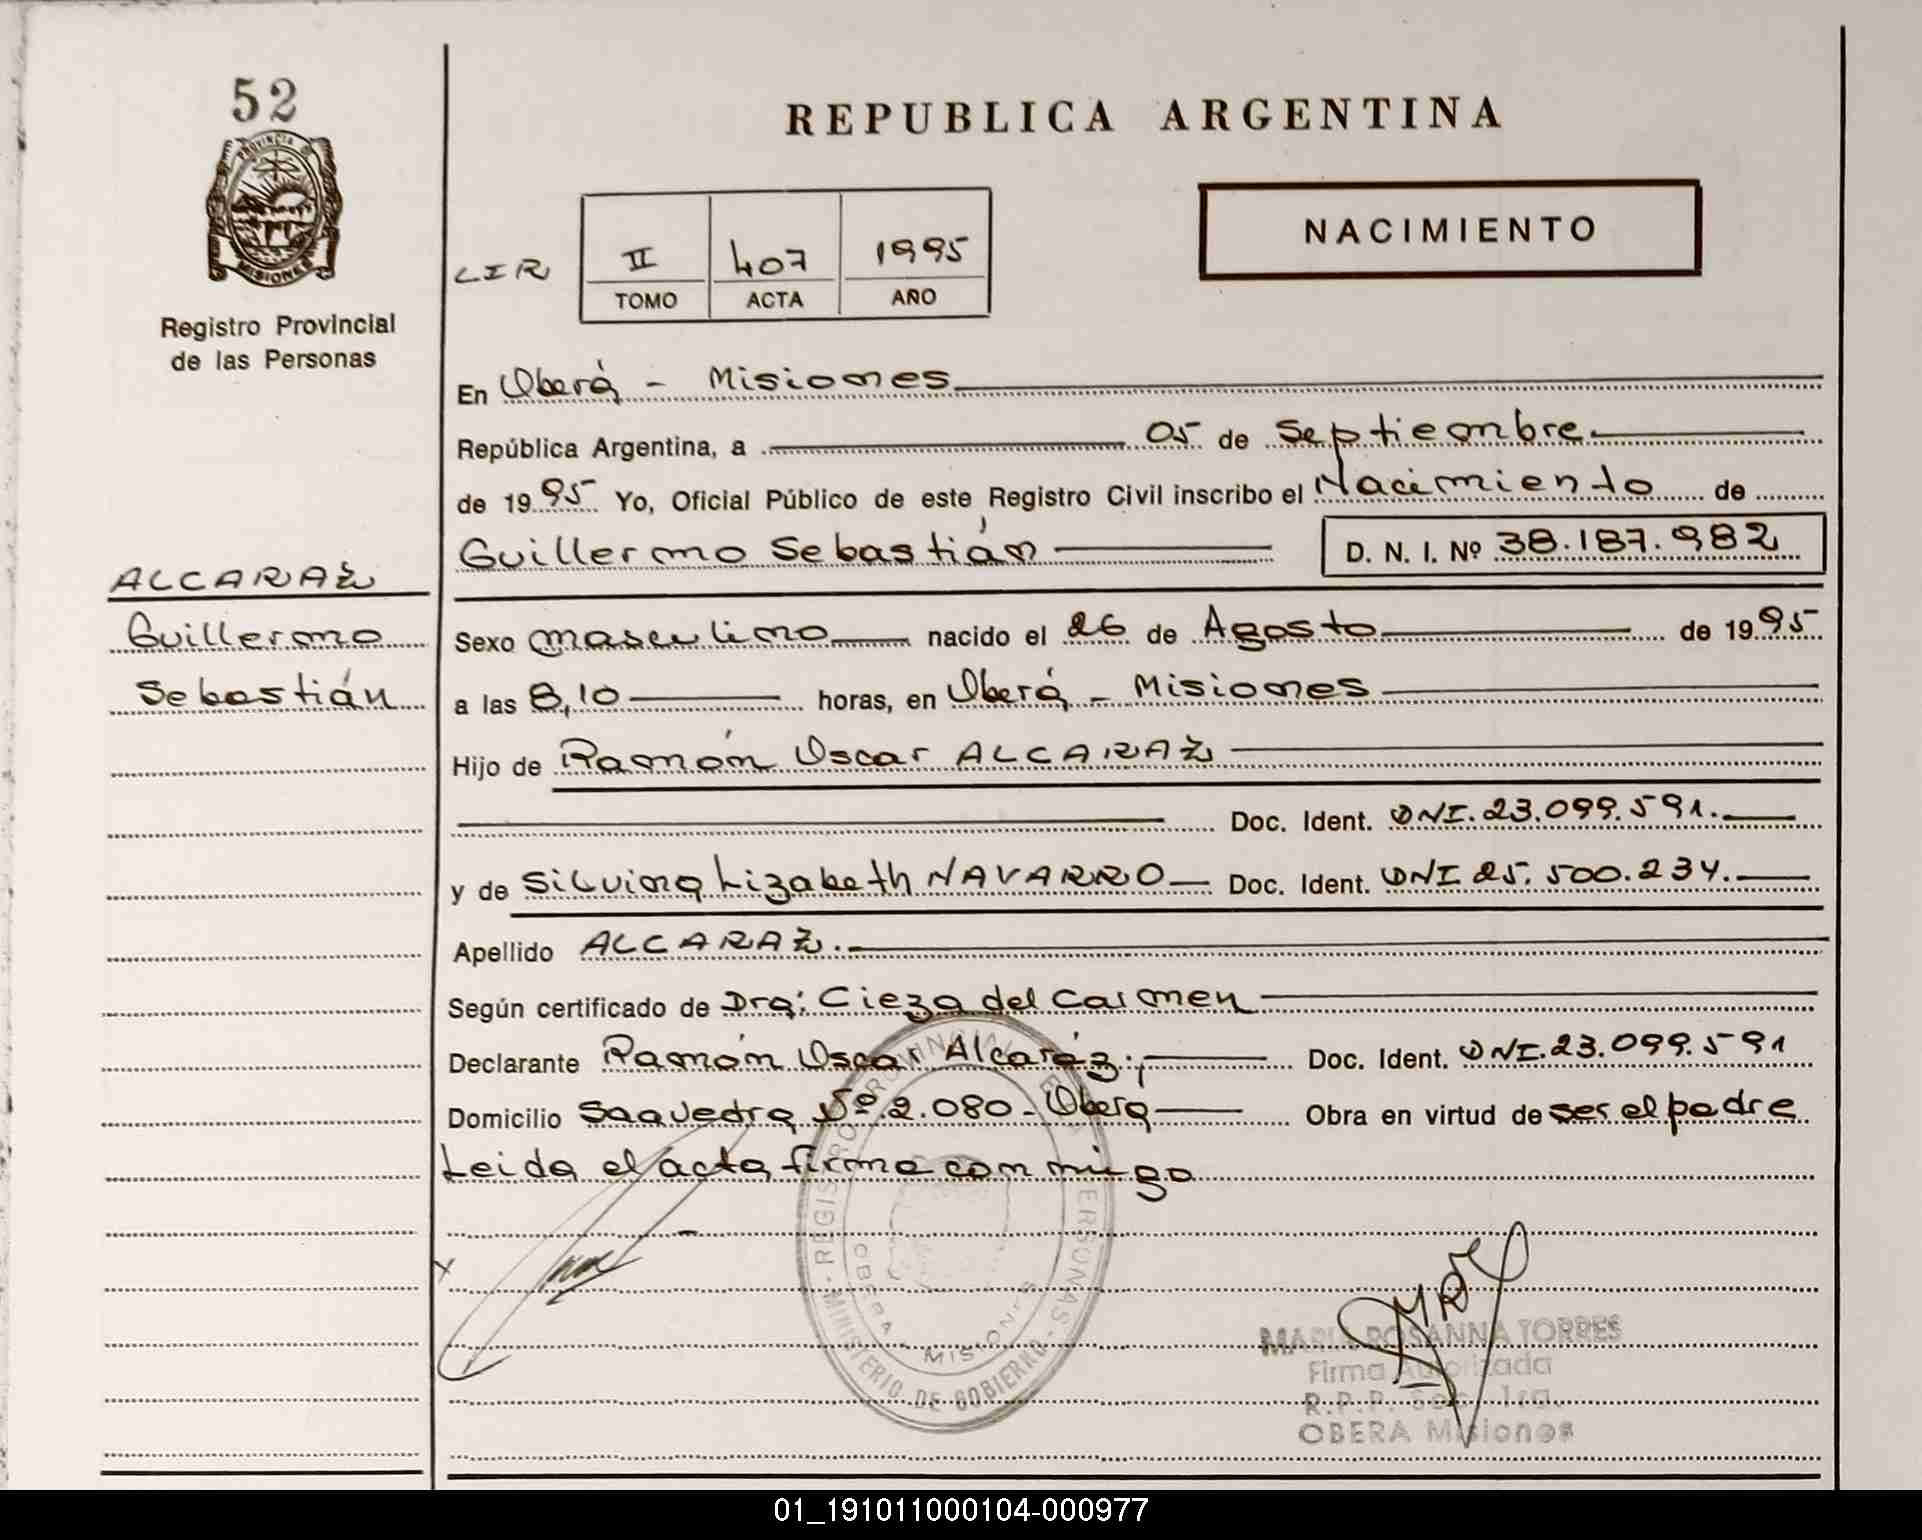 52
PROVINCIA DE
MISIONES
Registro Provincial
de las Personas
REPUBLICA ARGENTINA
NACIMIENTO
LIR
II 407 1995
TOMO ACTA AÑO
En Oberá - Misiones
República Argentina, a 05 de Septiembre
de 1995 Yo, Oficial Público de este Registro Civil inscribo el Nacimiento de
Guillermo Sebastián D. N. I. Nº 38.187.982
ALCARAZ
Guillermo
Sebastián
Sexo masculino nacido el 26 de Agosto de 1995
a las 8,10 horas, en Oberá - Misiones
Hijo de Ramón Oscar ALCARAZ
Doc. Ident. DNI. 23.099.591.
y de Silvina Lizabeth NAVARRO Doc. Ident. DNI 25.500.234.
Apellido ALCARAZ.
Según certificado de Dra: Cieza del Carmen
Declarante Ramón Oscar Alcaráz; Doc. Ident. DNI. 23.099.591
Domicilio Saavedra Nº 2.080 - Obera Obra en virtud de ser el padre
Leida el acta firma con migo
x
REGISTRO PROVINCIAL PERSONAS -
MINISTERIO DE GOBIERNO
OBERA - MISIONES
MARIA ROSANNA TORRES
Firma Autorizada
R.P.P. Sec. 1ra.
OBERA Misiones
01_191011000104-000977